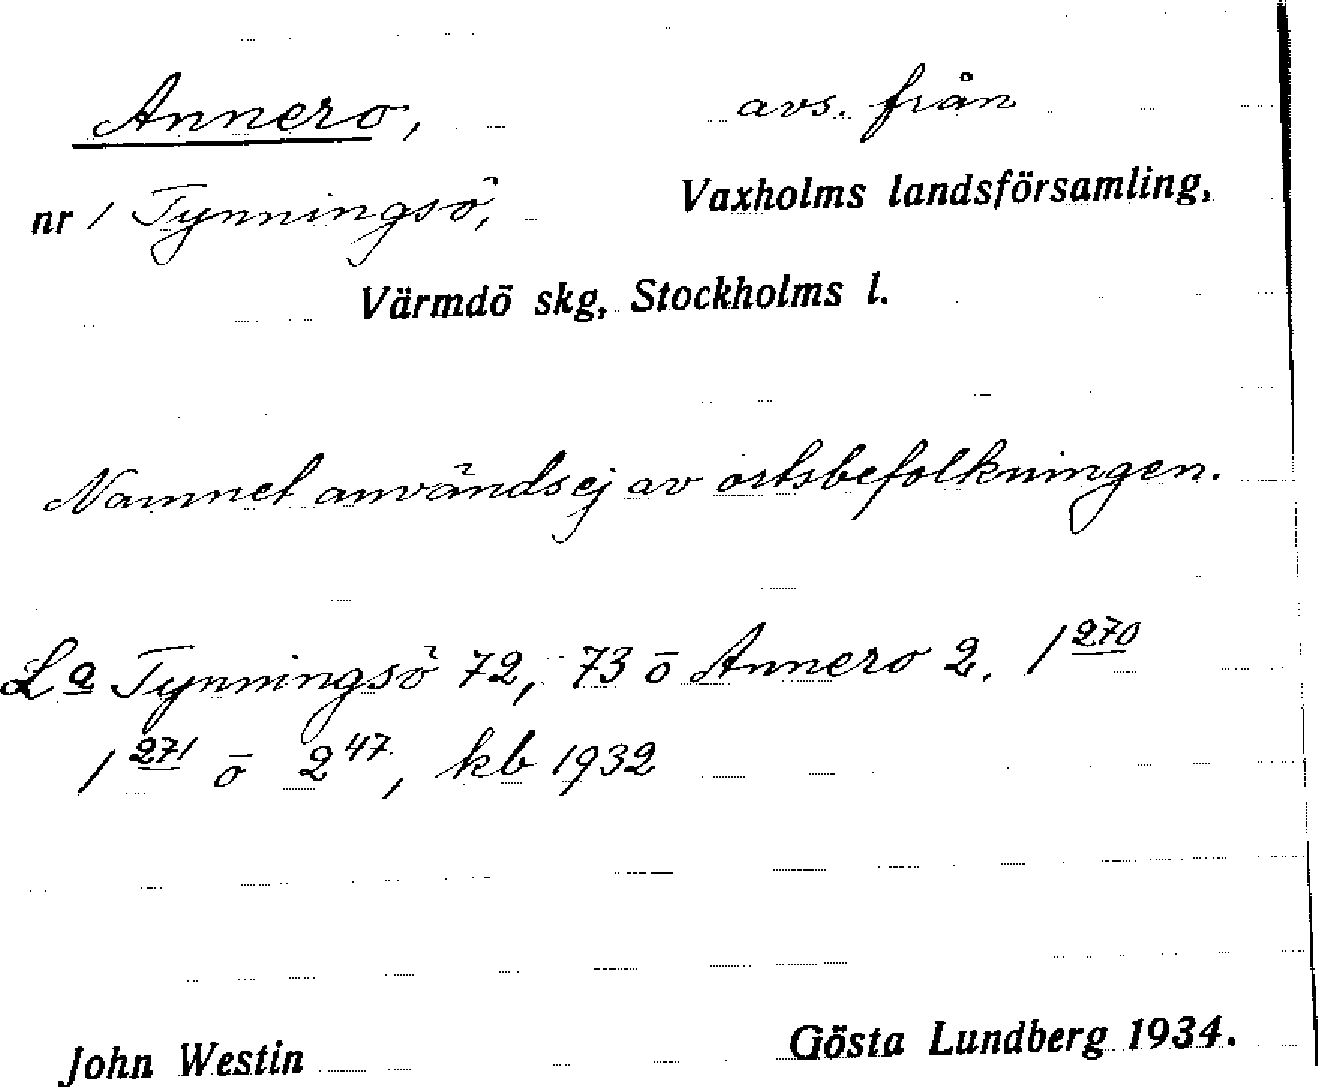 Annero, avs. från
nr 1 Tynningsö, Vaxholms landsförsamling,
Värmdö skg, Stockholms l.
Namnet användsej av ortsbefolkningen.
La Tynningsö 72, 73 o Annero 2. 1 270
1 271 o 2 47, kb 1932
John Westin Gösta Lundberg 1934.